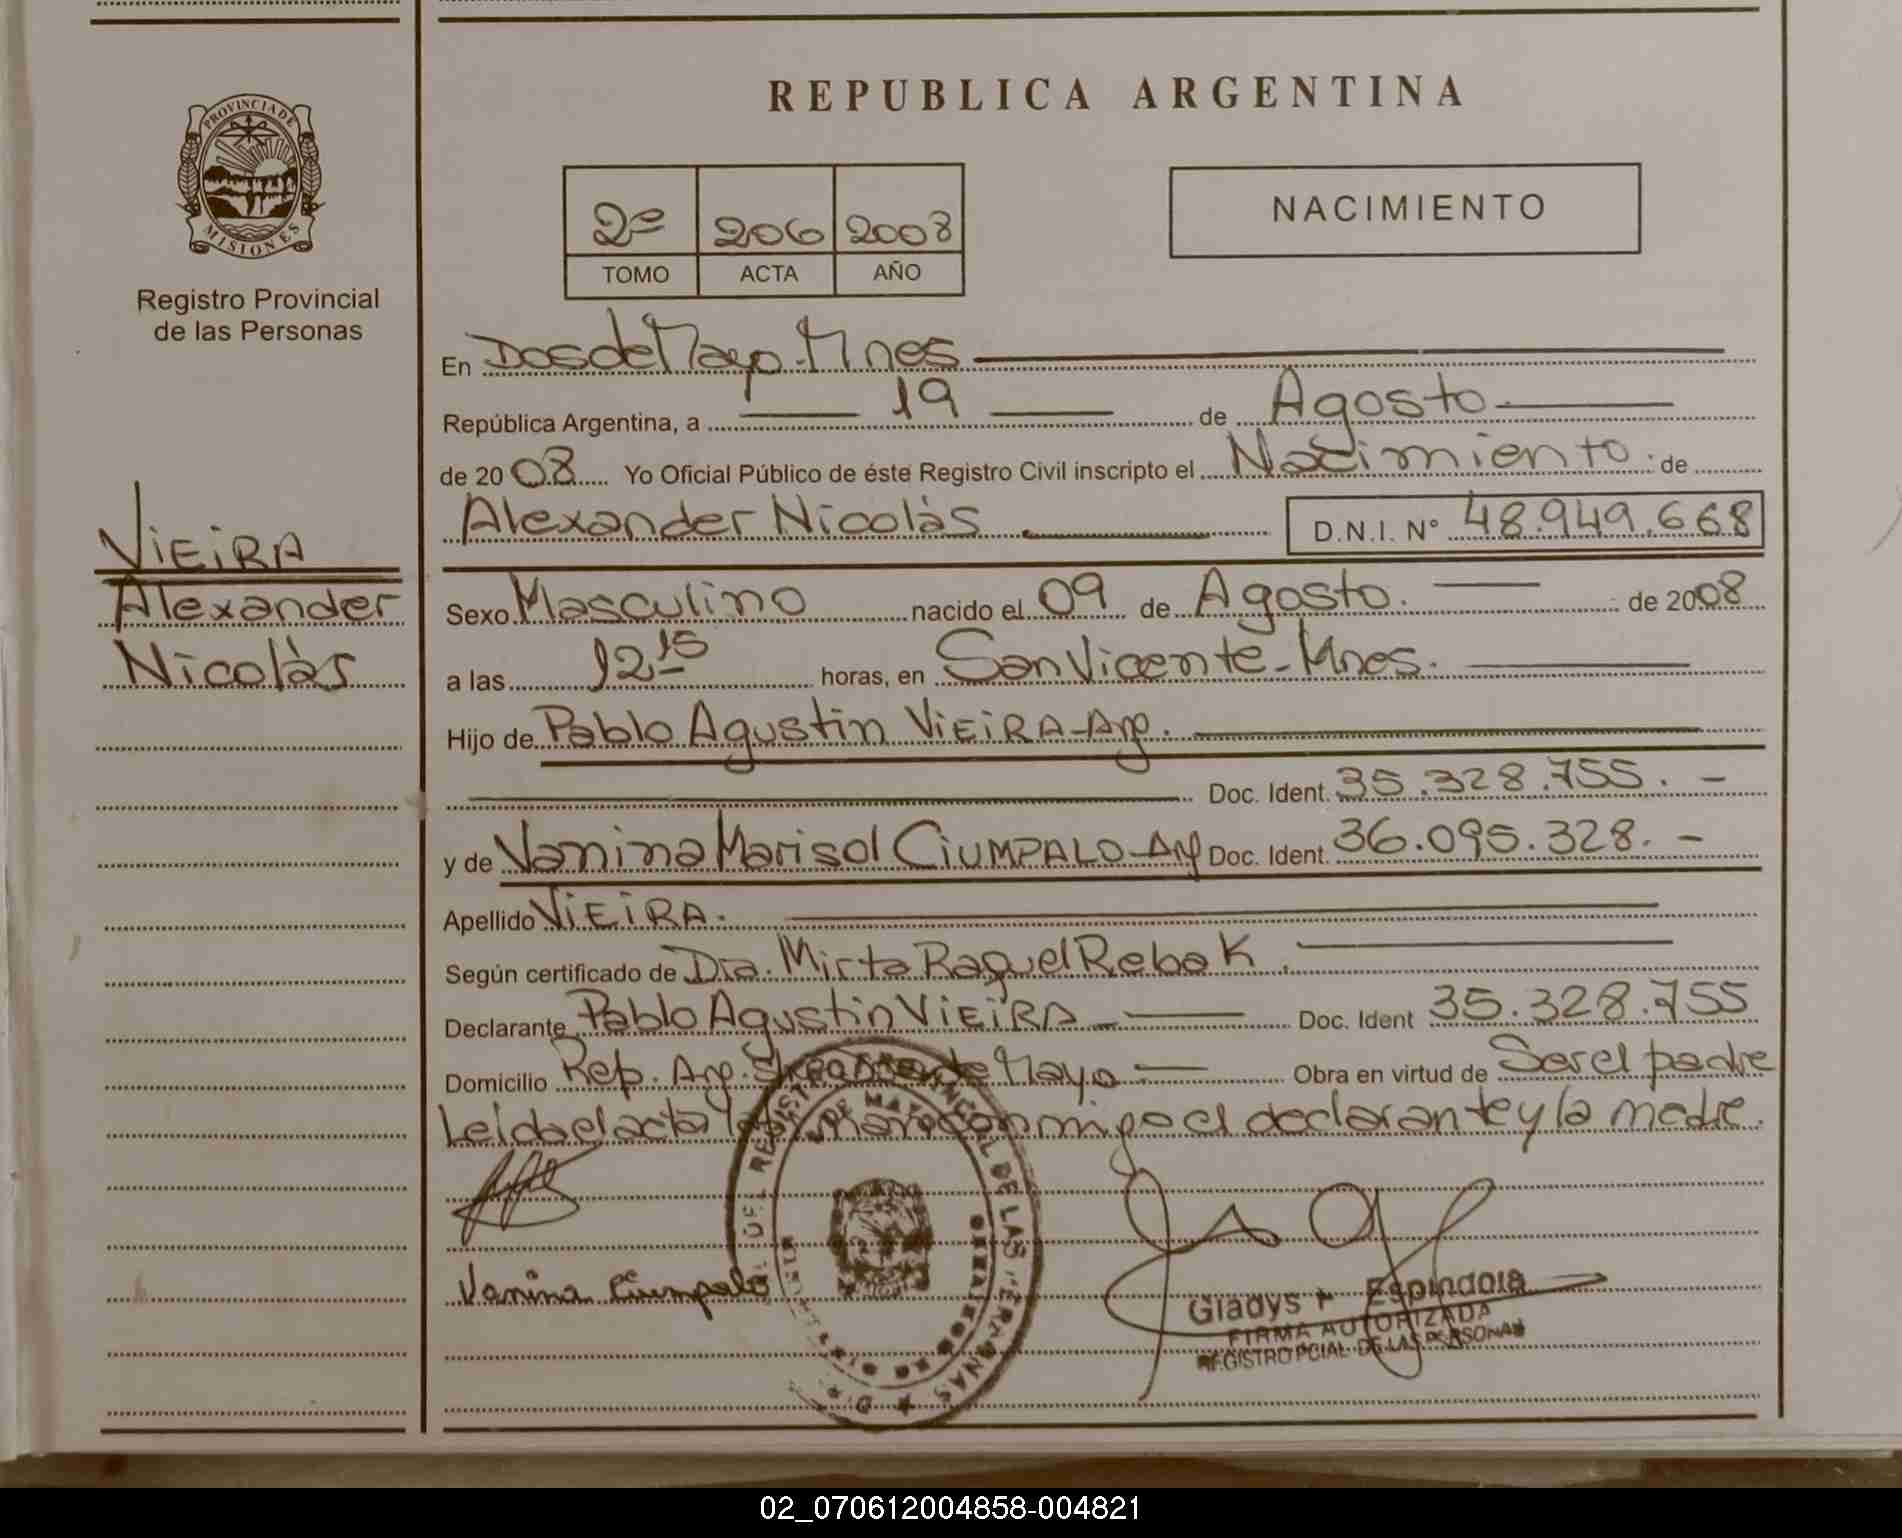 PROVINCIA DE
MISIONES
Registro Provincial
de las Personas
VIEIRA
Alexander
Nicolàs
REPUBLICA ARGENTINA
2º 206 2008
TOMO ACTA AÑO
NACIMIENTO
En Dos de Mayo. Mnes
República Argentina, a 19 de Agosto.
de 2008 Yo Oficial Público de éste Registro Civil inscripto el Nacimiento. de
Alexander Nicolàs D.N.I. Nº 48.949.668
Sexo Masculino nacido el 09 de Agosto. de 2008
a las 12 15 horas, en San Vicente-Mnes.
Hijo de Pablo Agustin VIEIRA-Arg.
Doc. Ident. 35.328.755. -
y de Vanina Marisol CIUMPALO-Arg Doc. Ident. 36.095.328. -
Apellido VIEIRA.
Según certificado de Dra. Mirta Raquel Rebak.
Declarante Pablo Agustin VIEIRA Doc. Ident 35.328.755
Domicilio Rep. Arg. de Mayo Obra en virtud de Ser el padre
Leida el acta la firman conmigo el declarante y la madre.
Vanina Ciumpalo
DE MAYO
DE LAS
Gladys Espindola
FIRMA AUTORIZADA
REGISTRO PCIAL DE LAS PERSONAS
02_070612004858-004821